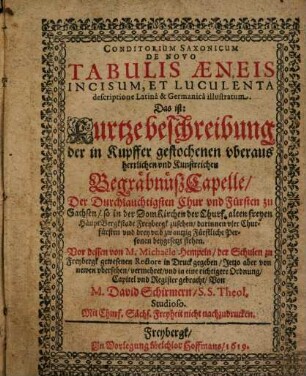 CONDITORIUM SAXONICUM
DE NOVO
TABULIS ÆNEIS
INCISUM, ET LUCULENTA
descriptione Latinâ & Germanicâ illustratum.
Das ist:
Kurtze beschreibung
der in Kupffer gestochenen vberaus
herrlichen vnd Kunstreichen
Begräbnüß Capelle/
Der Durchlauchtigsten Chur vnd Fürsten zu
Sachsen/ so in der Dom Kirchen der Churf. alten freyen
Häupt Bergkstadt Freybergk zusehen/ dorinnen vier Chur-
fürsten vnd drey vnd zwantzig Fürstliche Per-
sonen beygesetzt stehen.
Vor dessen von M. Michaële Hempeln/ der Schulen zu
Freybergk gewesenen Rectore in Druck gegeben/ Jetzo aber von
newen vbersehen/ vermehret/ vnd in eine richtigere Ordnung/
Capitel vnd Register gebracht/ Von
M. David Schirmern/ S.S. Theol.
Studioso.
Mit Churf. Sächs. Freyheit nicht nachzudrucken.
Freybergk/
In Vorlegung Melchior Hoffmans/ 1619.